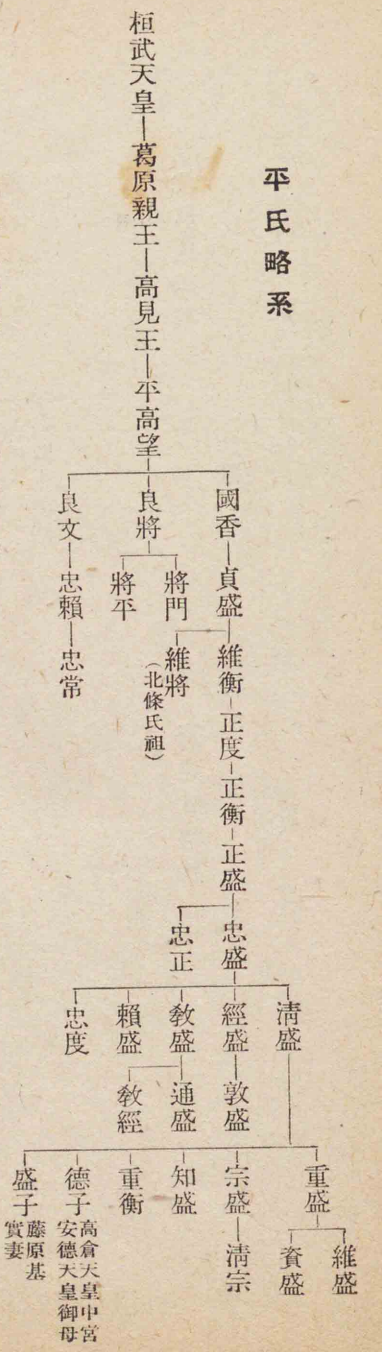 平氏略系
桓武天皇―葛原親王―高見王―平高望
國香―貞盛
維衡―正度―正衡―正盛
維將
(北條氏祖)
良將
將門
將平
良文―忠賴―忠常
忠盛
忠正
淸盛
經盛―敦盛
敎盛
通盛
敎經
賴盛
忠度
重盛
維盛
資盛
宗盛―淸宗
知盛
重衡
德子
高倉天皇中宮
安德天皇御母
盛子
藤原基
實妻